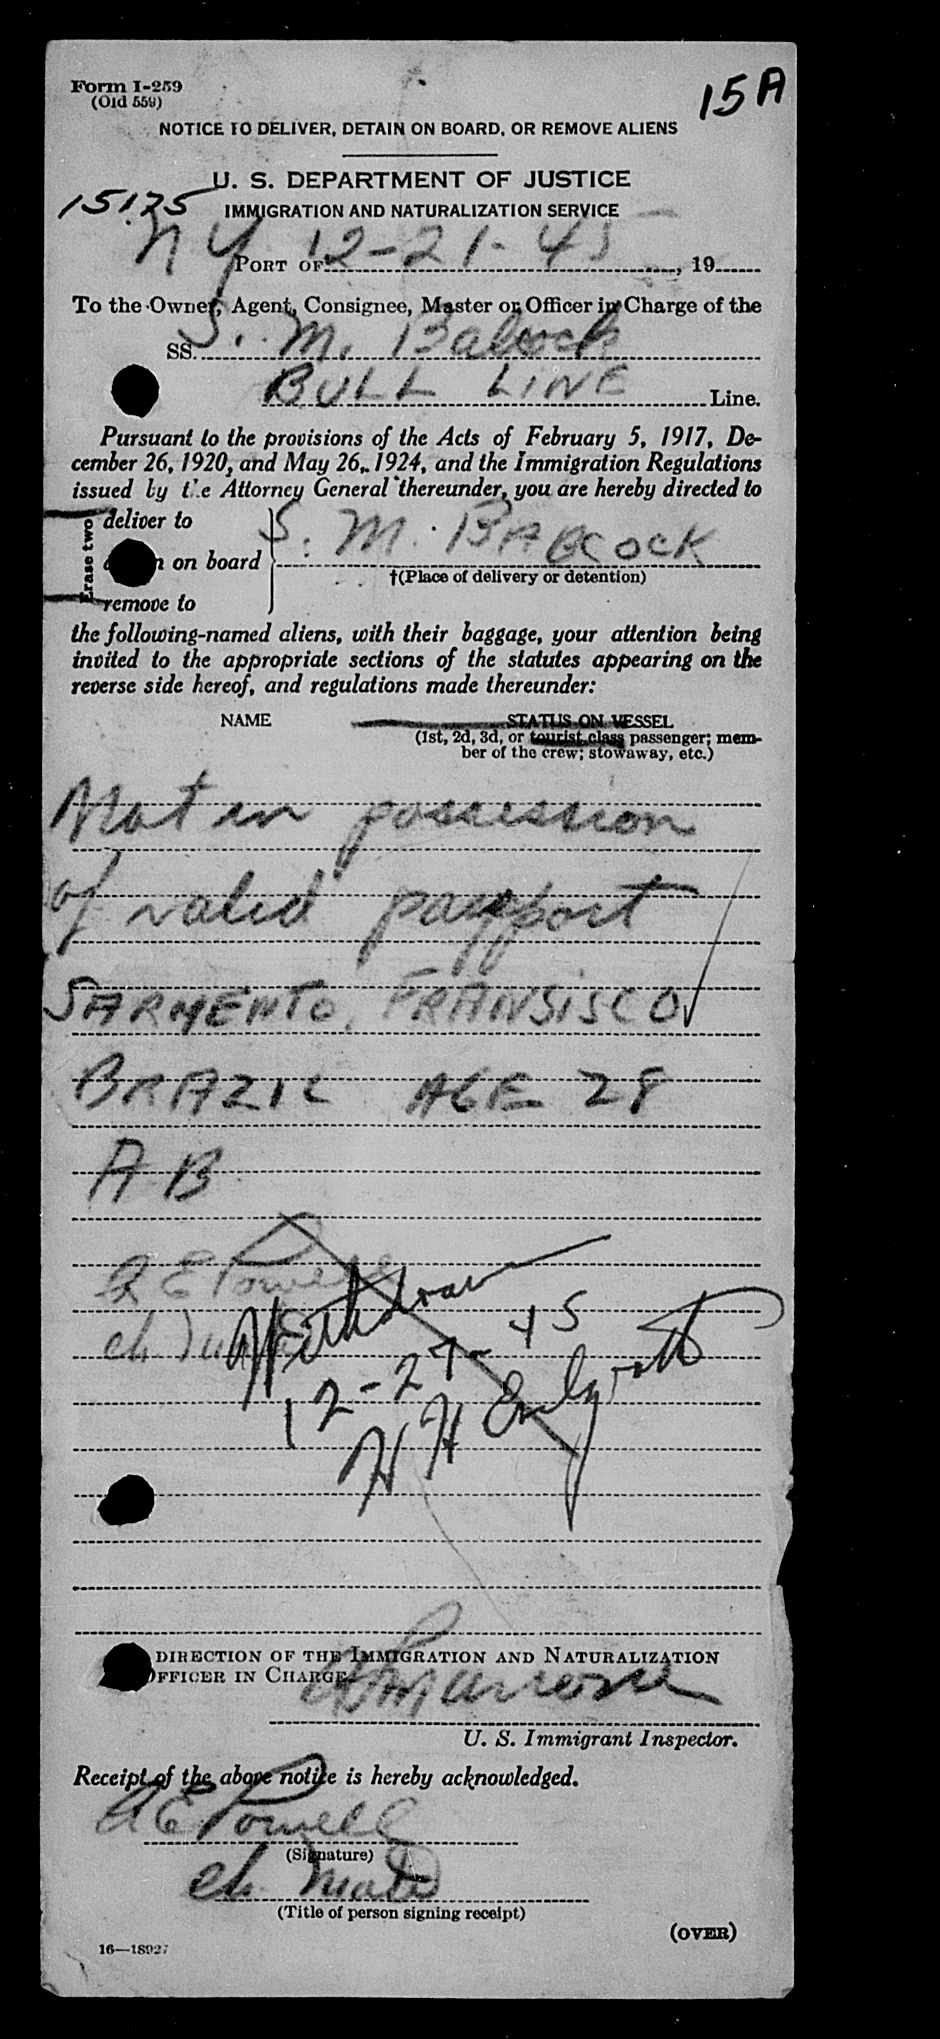 Form I-259
(Old 559)
15A
NOTICE TO DELIVER, DETAIN ON BOARD, OR REMOVE ALIENS
U. S. DEPARTMENT OF JUSTICE
15175
IMMIGRATION AND NATURALIZATION SERVICE
NY 12-21-45
PORT OF , 19
To the Owner, Agent, Consignee, Master or Officer in Charge of the
SS. S. M. Babcock
BULL LINE Line.
Pursuant to the provisions of the Acts of February 5, 1917, De-
cember 26, 1920, and May 26, 1924, and the Immigration Regulations
issued by the Attorney General thereunder, you are hereby directed to
Erase two
deliver to
S. M. BABCOCK
on board
†(Place of delivery or detention)
remove to
the following-named aliens, with their baggage, your attention being
invited to the appropriate sections of the statutes appearing on the
reverse side hereof, and regulations made thereunder:
NAME STATUS ON VESSEL
(1st, 2d, 3d, or tourist class passenger; mem-
ber of the crew; stowaway, etc.)
Not in possession
of valid passport
SARMENTO, FRANSISCO
BRAZIL AGE 28
AB
A E Powell
ch.
Withdrawn
12-27-45
H H
DIRECTION OF THE IMMIGRATION AND NATURALIZATION
OFFICER IN CHARGE
U. S. Immigrant Inspector.
Receipt of the above notice is hereby acknowledged.
A E Powell
(Signature)
ch. Mate
(Title of person signing receipt)
(OVER)
16—18927